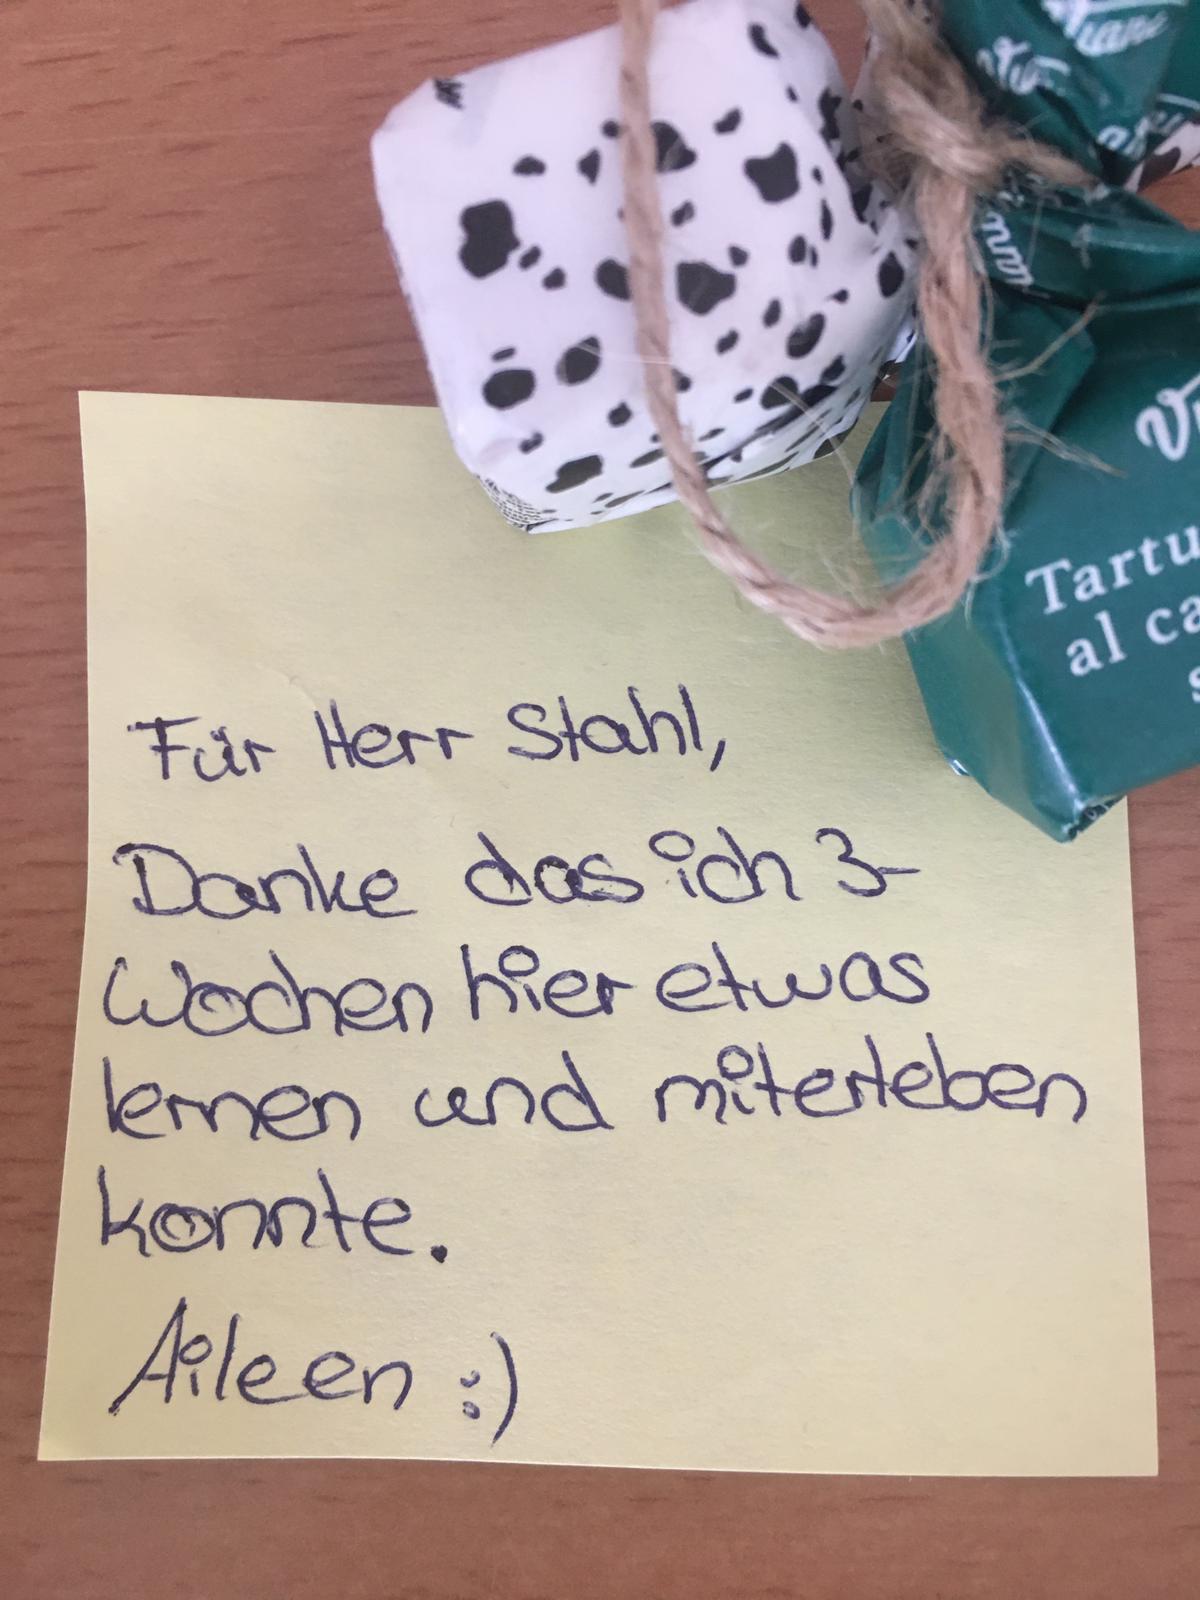 Tartu
al ca
Für Herr Stahl,
Danke das ich 3-
Wochen hier etwas
lernen und miterleben
konnte.
Aileen :)